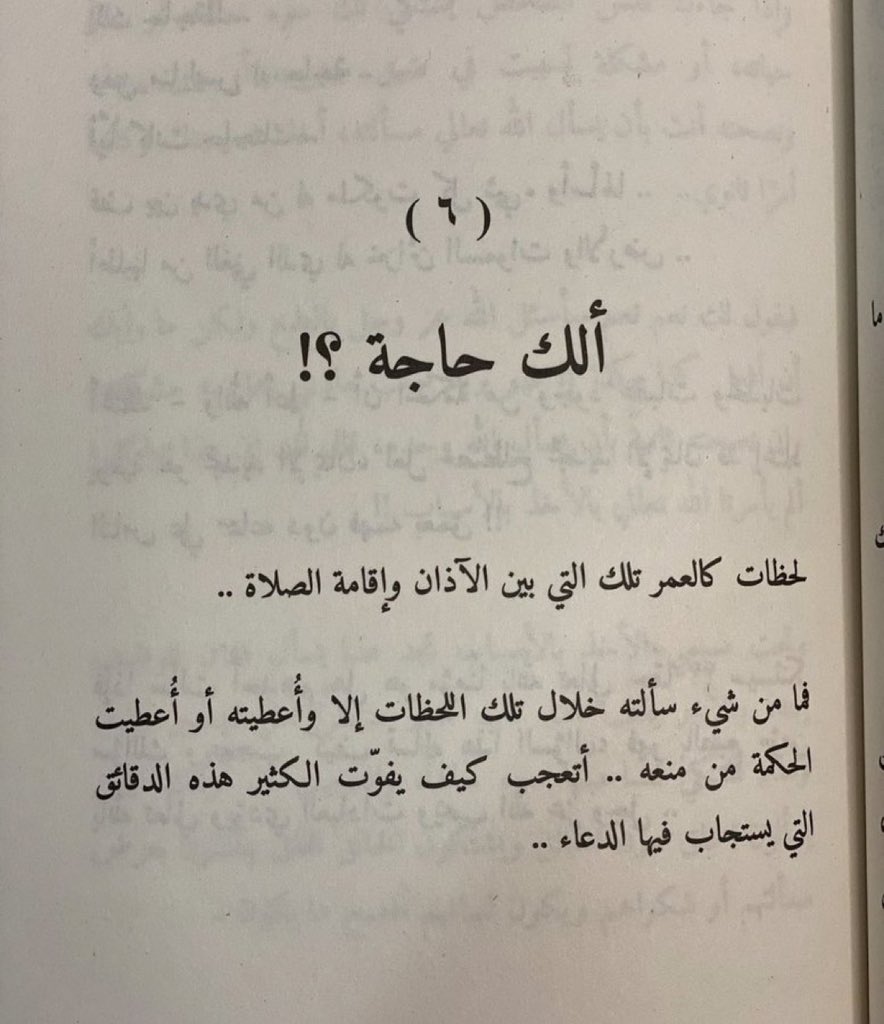 ( ٦ )
ألك حاجة ؟!
لحظات كالعمر تلك التي بين الآذان وإقامة الصلاة ..
فما من شيء سألته خلال تلك اللحظات إلا وأُعطيته أو أُعطيت
الحكمة من منعه .. أتعجب كيف يفوّت الكثير هذه الدقائق
التي يستجاب فيها الدعاء ..
ما